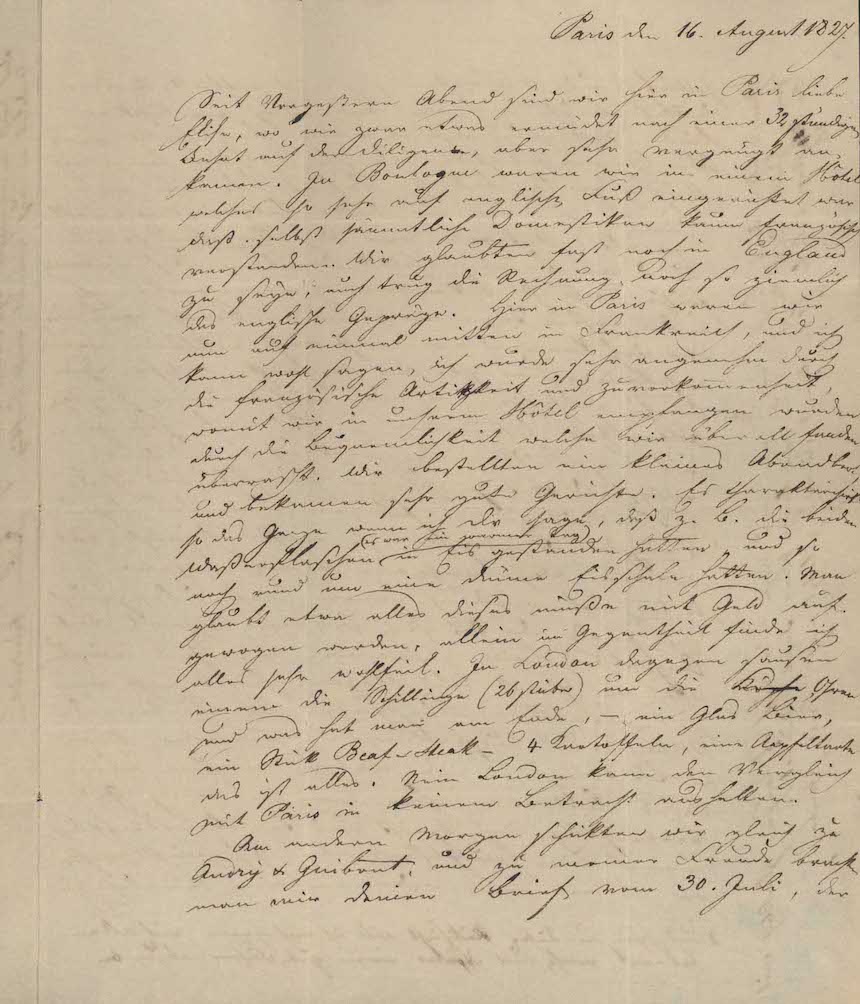 Paris den 16. August 1827.
Seit Vorgestern Abend sind wir hier in Paris liebe
Elise, wo wir zwar etwas ermüdet nach einer 32 stündigen
auf der Diligence, aber sehr vergnügt an-
kamen. In Boulogne waren wir in einem Hôtel
welches so sehr auf englischen Fuß eingerichtet war
daß selbst sämmtliche Domestiken kaum französisch
verstanden. Wir glaubten fast noch in England
zu seyn, auch trug die Rechnung noch so ziemlich
das englische Gepräge. Hier in Paris waren wir
nun auf einmal mitten in Frankreich, und ich
kann wohl sagen, ich wurde sehr angenehm durch
die französische Artigkeit und Zuvorkommenheit,
womit wir in unserem Hôtel empfangen wurden
durch die Bequemlichkeit welche wir überall fanden
überrascht. Wir bestellten ein kleines Abendbrod
und bekamen sehr gute Gerichte. Es charakterisirt
so das Ganze wenn ich dir sage, daß z. B. die beiden
(es war ein warmer Tag)
Waßerflaschen in Eis gestanden hatten und so
noch rund um eine dünne Eisschale hatten. Man
glaubt etwa alles dieses müße mit Geld auf-
gewogen werden, allein im Gegentheil finde ich
alles sehr wohlfeil. In London dagegen sausen
einem die Schillinge (26 stüber) um die Ohren
und was hat man am Ende, – ein Glas Bier,
ein Stük Beaf-Steak – 4 Kartoffeln, eine Aepfeltarte
das ist alles. Nein London kann den Vergleich
mit Paris in keinem Betracht aushalten.
Am andern Morgen schikten wir gleich zu
Andry & Guibout, und zu meiner Freude brachte
man mir deinen Brief vom 30. Juli, der